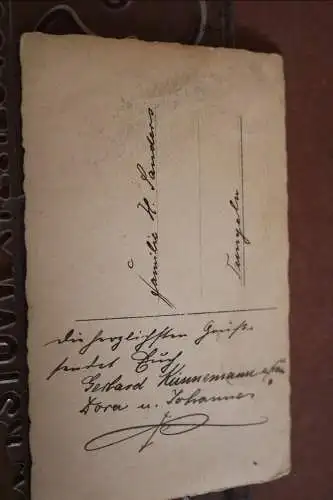 Familie H. Sanders
Tungeln
Die herzlichsten Grüße
sendet Euch
Gerhard Künnemann u. Frau
Dora u. Johannes